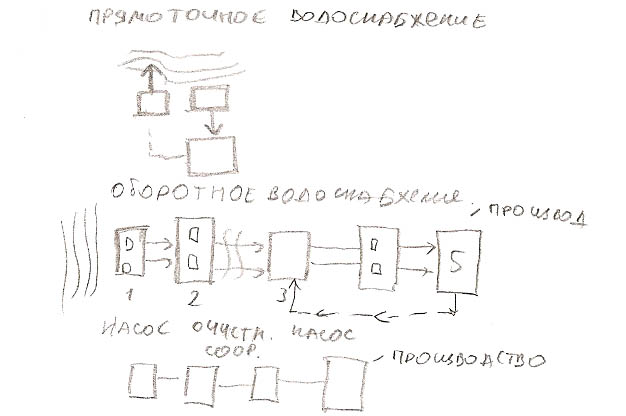 ПРЯМОТОЧНОЕ ВОДОСНАБЖЕНИЕ
ОБОРОТНОЕ ВОДОСНАБЖЕНИЕ.
ПРОИЗВОД
5
1 2 3
НАСОС ОЧИСТН. НАСОС
СООР.
ПРОИЗВОДСТВО